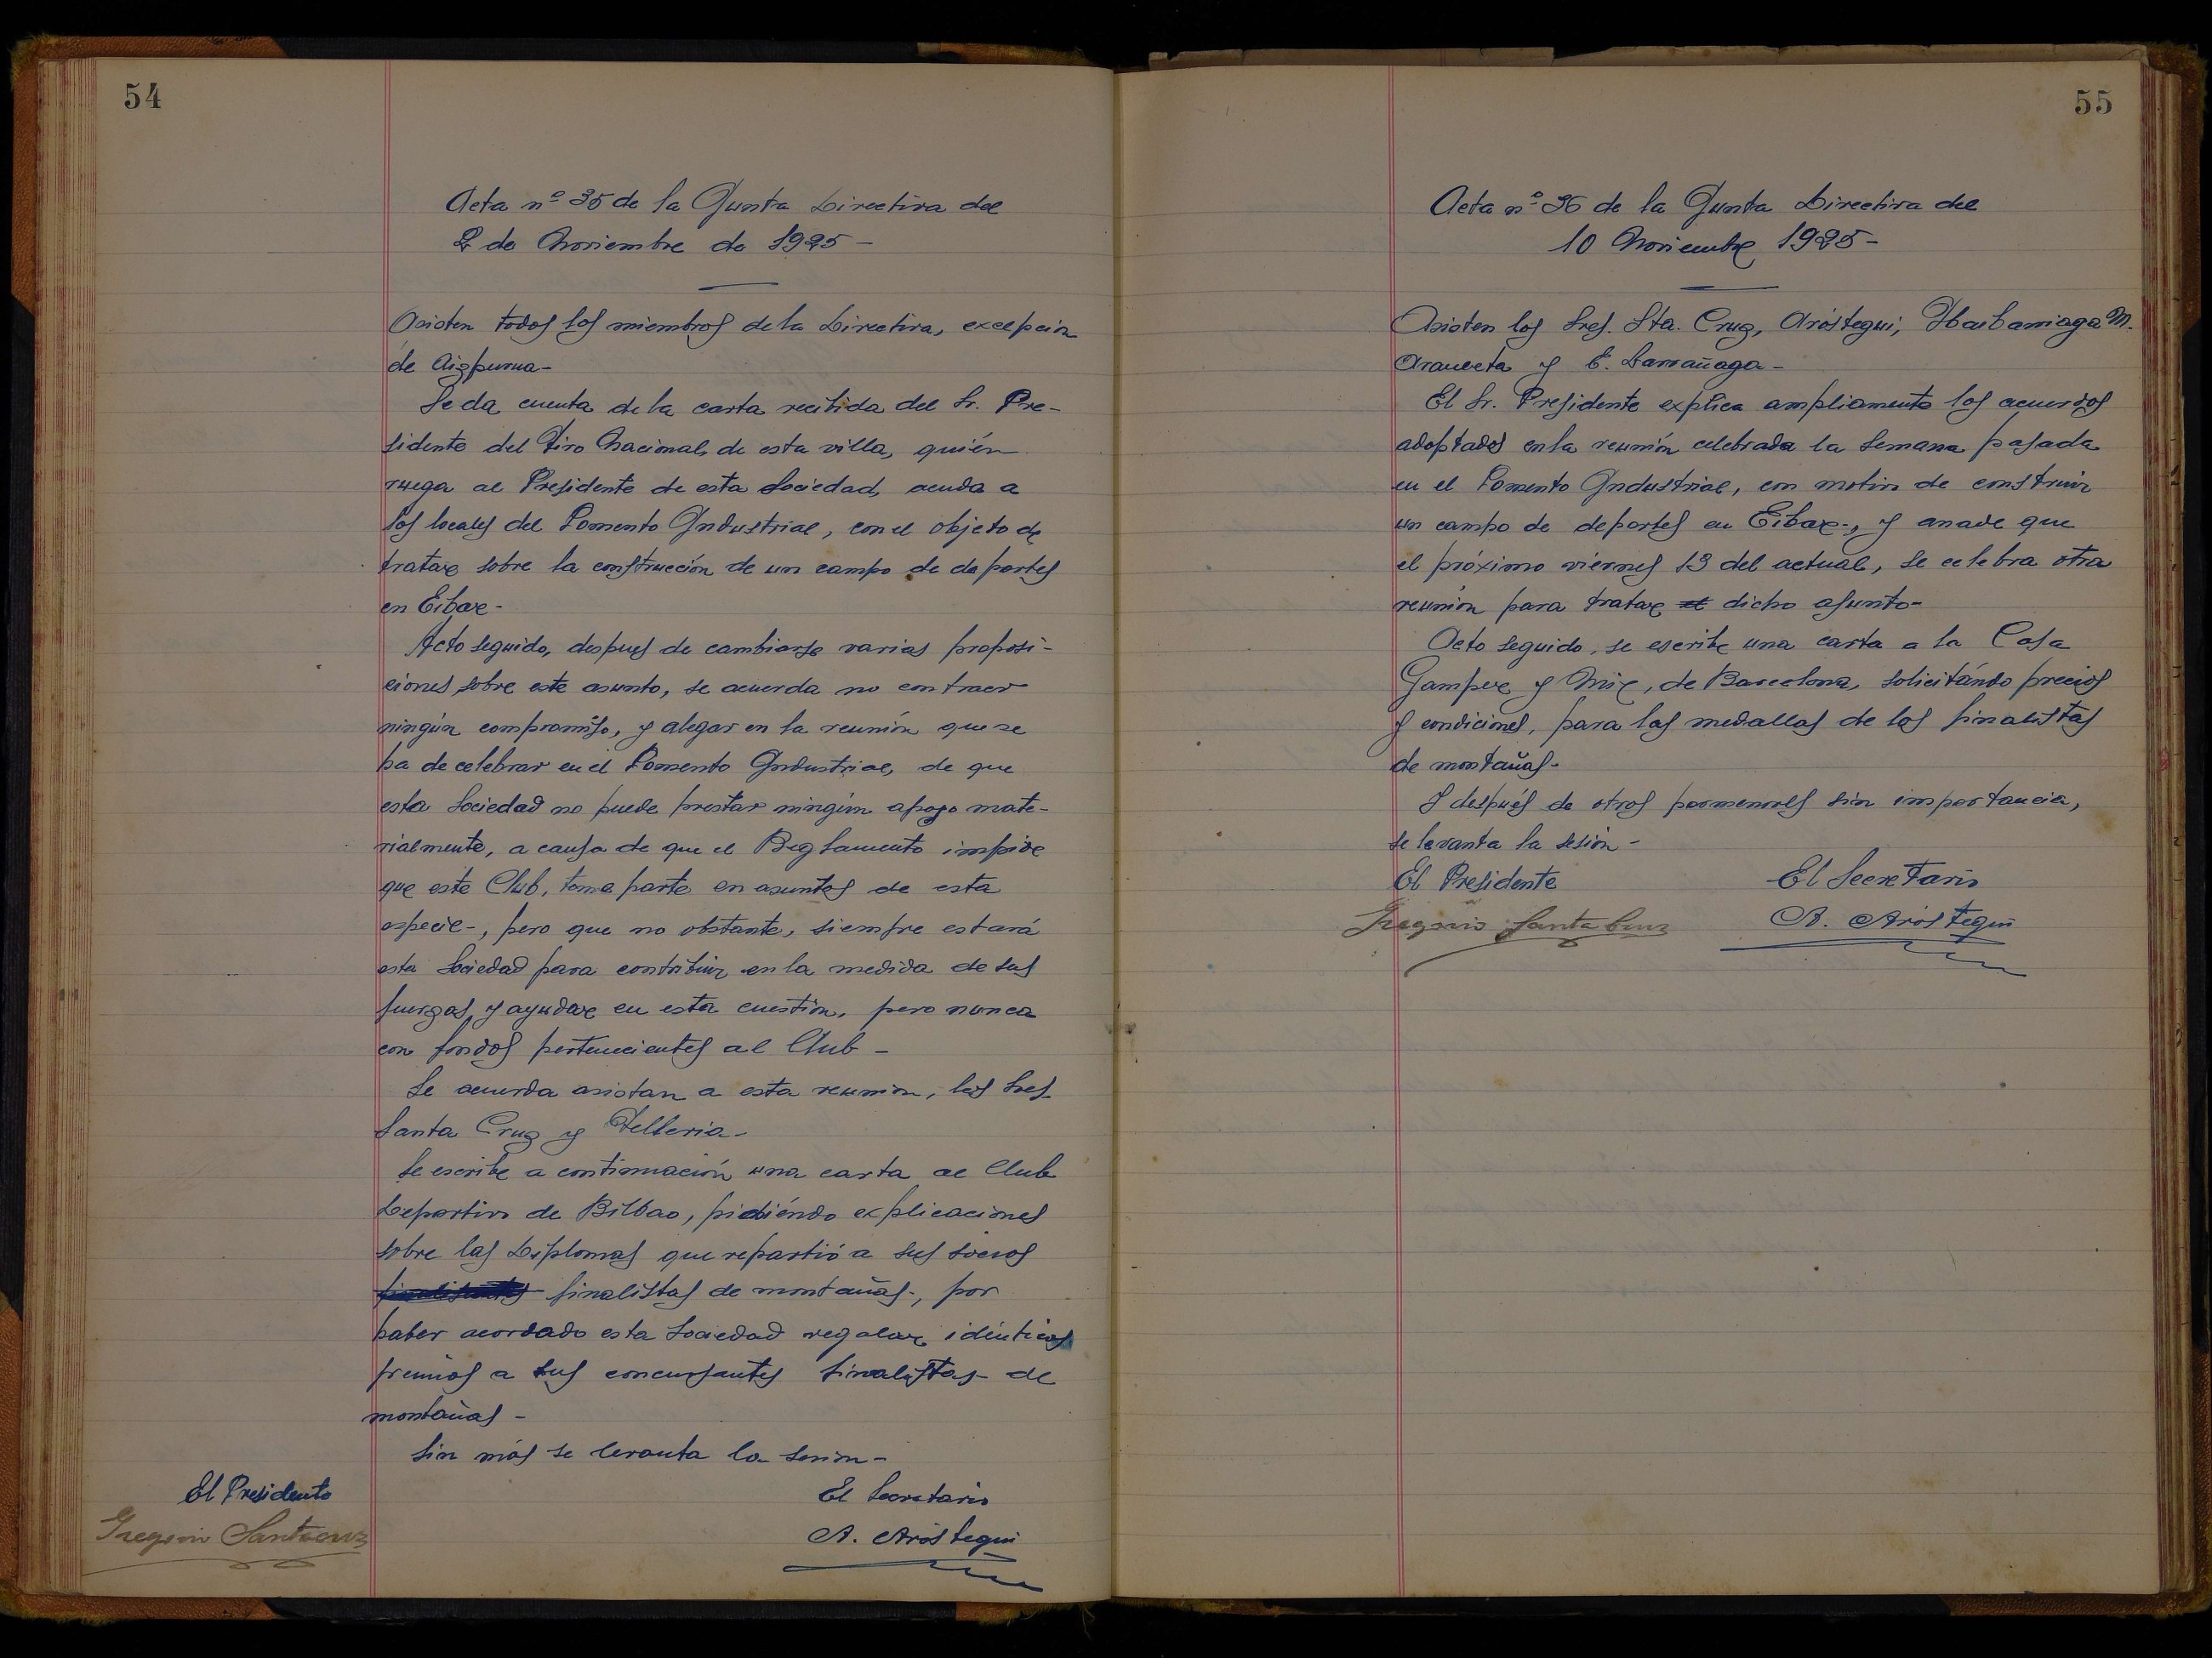 54
Acta nº 35 de la Junta Directiva del
2 de Noviembre de 1925 -
Asisten todos los miembros de la Directiva, excepción
de Aizpurua -
Se da cuenta de la carta recibida del Sr. Pre-
sidente del Tiro Nacional, de esta villa, quién
ruega al Presidente de esta Sociedad, acuda a
los locales del Fomento Industrial, con el objeto de
tratar sobre la construcción de un campo de deportes
en Eibar -
Acto seguido, despues de cambiarse varias proposi-
ciones sobre este asunto, se acuerda no contraer
ningún compromiso, y alegar en la reunión que se
ha de celebrar en el Fomento Industrial, de que
esta Sociedad no puede prestar ningún apoyo mate-
rialmente, a causa de que el Reglamento impide
que este Club, tome parte en asuntos de esta
especie -, pero que no obstante, siempre estará
esta Sociedad para contribuir en la medida de sus
fuerzas, y ayudar en esta cuestión, pero nunca
con fondos pertenecientes al Club -
Se acuerda asistan a esta reunión, los Sres.
Santa Cruz y Telleria -
Se escribe a continuación una carta al Club
Deportivo de Bilbao, pidiéndo explicaciones
sobre las Diplomas que repartió a sus socios
finalistas de montañas -, por
haber acordado esta Sociedad regalar idénticos
premios a sus concursantes finalistas de
montañas -
Sin más se levanta la sesión -
El Presidente
Gregorio Santacruz
El Secretario
A. Aróstegui
55
Acta nº 36 de la Junta Directiva del
10 Noviembre 1925 -
Asisten los Sres. Sta. Cruz, Aróstegui, Ibarbarriaga M.
Aranceta y E. Larrañaga -
El Sr. Presidente explica ampliamente los acuerdos
adoptados en la reunión celebrada la semana pasada
en el Fomento Industrial, con motivo de construir
un campo de deportes en Eibar -, y anade que
el próximo viérnes 13 del actual, se celebra otra
reunión para tratar dicho asunto -
Acto seguido, se escribe una carta a la Casa
Gamper y Mir, de Barcelona, solicitándo precios
y condiciones, para las medallas de los finalistas
de montañas -
Y después de otros pormenores sin importancia,
se levanta la sesión -
El Presidente
Gregorio Santa Cruz
El Secretario
A. Aróstegui